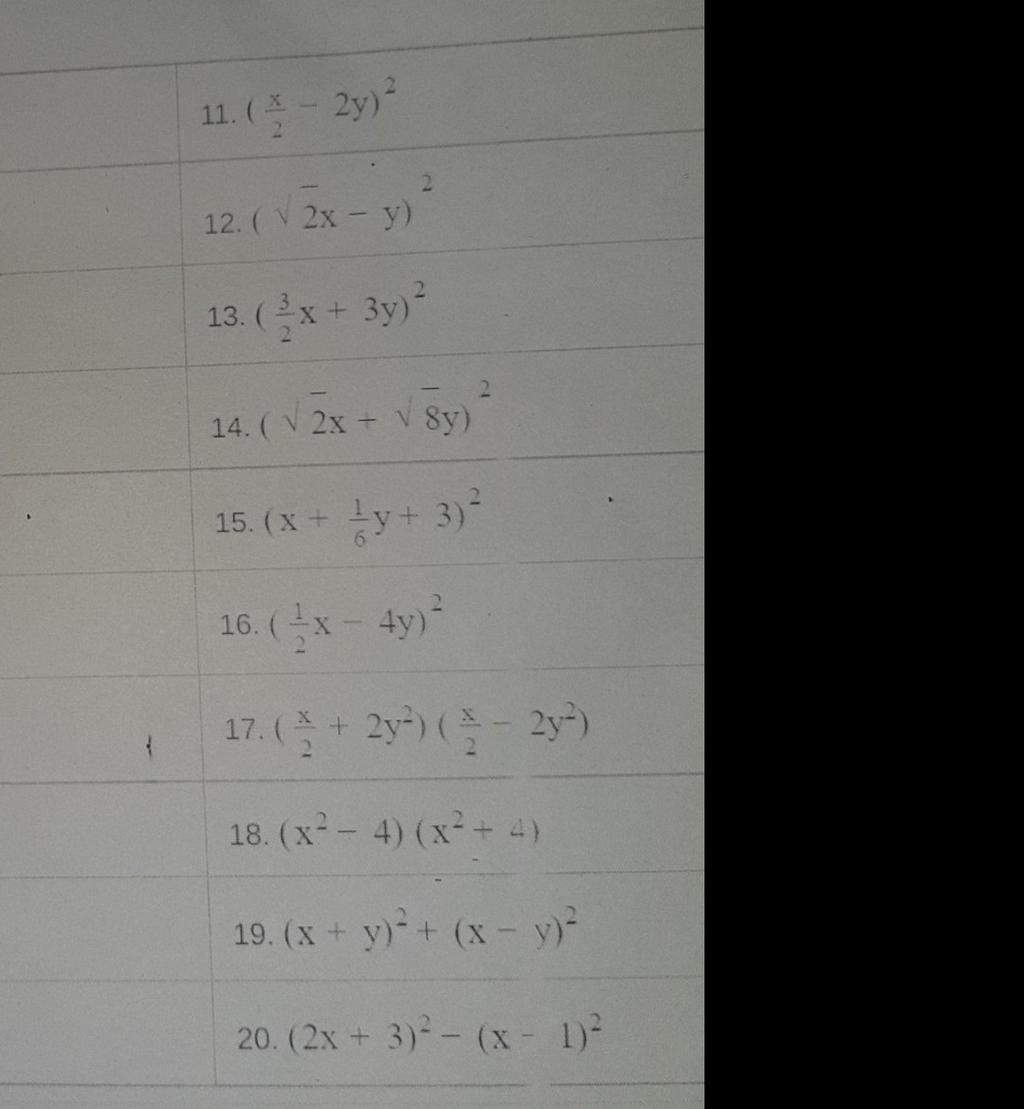 11. (x/2 − 2y)²
12. (√2x − y)²
13. (3/2x + 3y)²
14. (√2x + √8y)²
15. (x + 1/6y + 3)²
16. (1/2x − 4y)²
17. (x/2 + 2y²) (x/2 − 2y²)
18. (x² − 4) (x² + 4)
19. (x + y)² + (x − y)²
20. (2x + 3)² − (x − 1)²